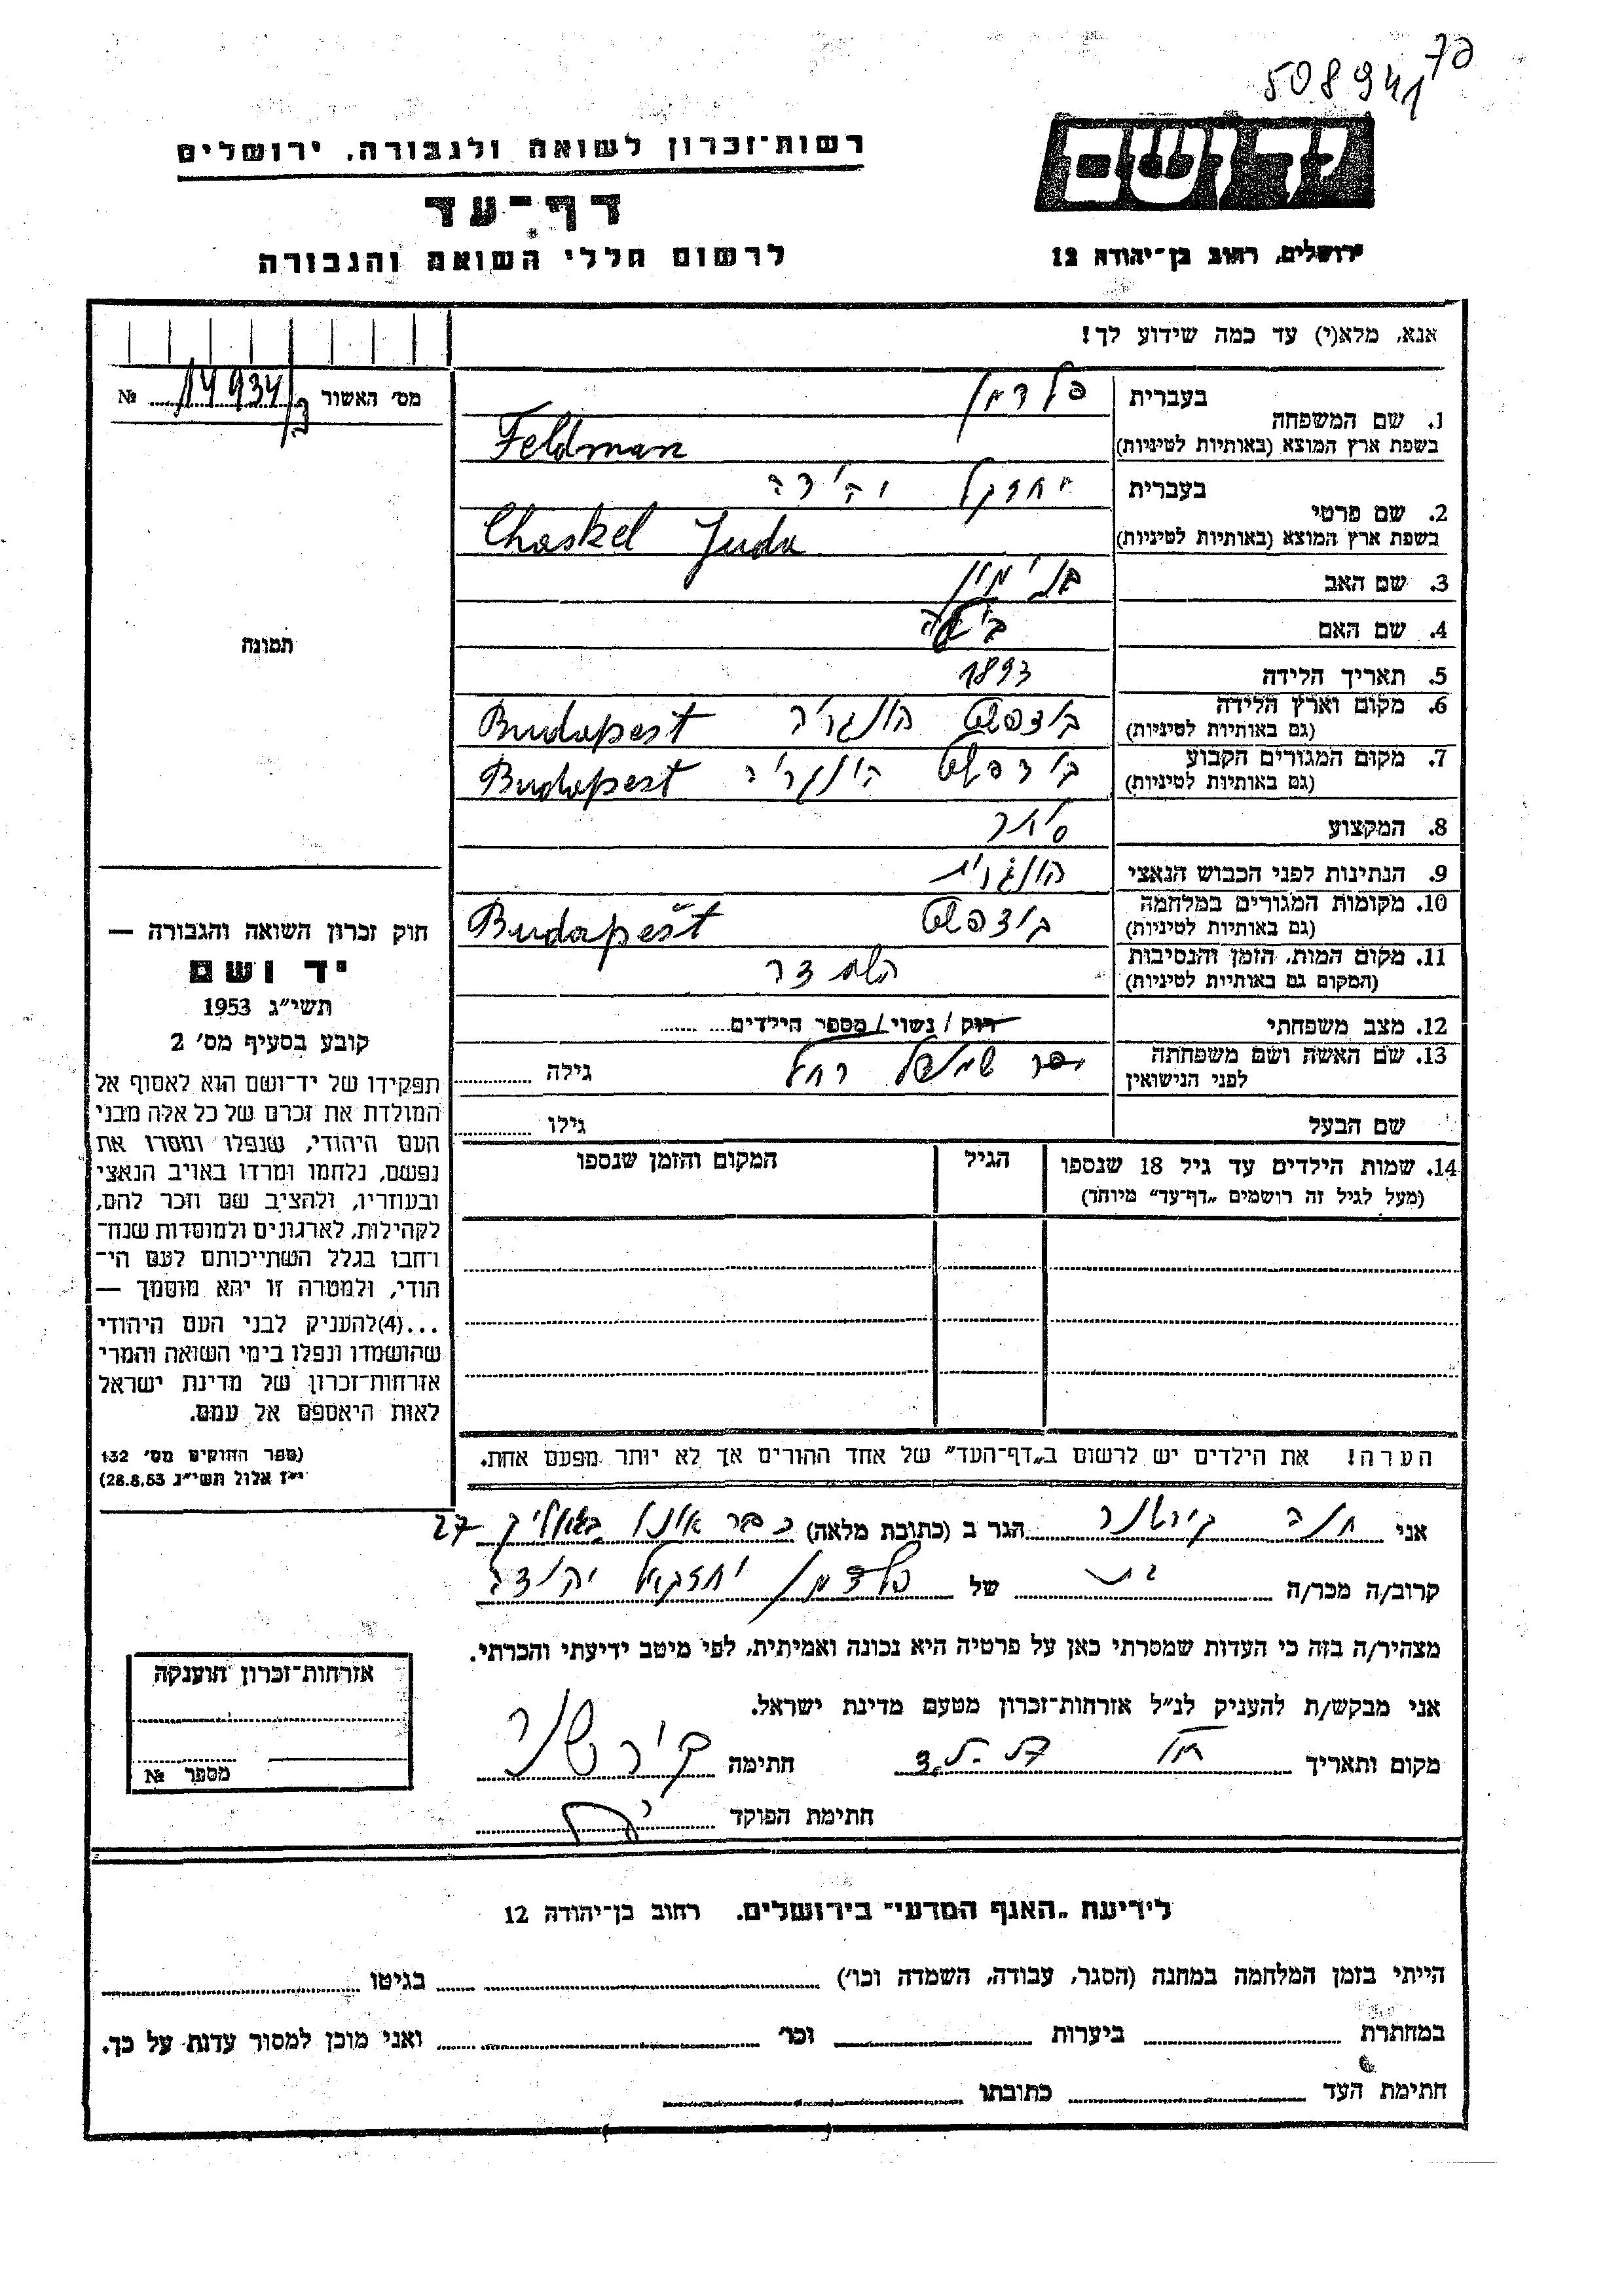 508941
70
רשות־זכרון לשואה ולגבורה, ירושלים
יד ושם
דף־עד
לרשום חללי השואה והגבורה
ירושלים, רחוב בן־יהודה 12
אנא, מלא(י) עד כמה שידוע לך!
מס׳ האשור № 14934
1. שם המשפחה בעברית פלדמן
בשפת ארץ המוצא (באותיות לטיניות) Feldman
2. שם פרטי בעברית יחזקל יהודה
בשפת ארץ המוצא (באותיות לטיניות) Chaskel Juda
3. שם האב בנימין
4. שם האם
תמונה
5. תאריך הלידה 1893
6. מקום וארץ הלידה בודפשט הונגריה Budapest
(גם באותיות לטיניות)
7. מקום המגורים הקבוע בודפשט הונגריה Budapest
(גם באותיות לטיניות)
8. המקצוע סוחר
9. הנתינות לפני הכבוש הנאצי הונגרית
10. מקומות המגורים במלחמה בודפשט Budapest
(גם באותיות לטיניות)
11. מקום המות, הזמן והנסיבות
(המקום גם באותיות לטיניות)
12. מצב משפחתי רוק / נשוי / מספר הילדים
13. שם האשה ושם משפחתה רחל גילה
לפני הנישואין
שם הבעל גילו
14. שמות הילדים עד גיל 18 שנספו הגיל המקום והזמן שנספו
(מעל לגיל זה רושמים „דף־עד” מיוחד)
הערה! את הילדים יש לרשום ב„דף־העד” של אחד ההורים אך לא יותר מפעם אחת.
חוק זכרון השואה והגבורה —
יד ושם
תשי״ג 1953
קובע בסעיף מס׳ 2
תפקידו של יד־ושם הוא לאסוף אל
המולדת את זכרם של כל אלה מבני
העם היהודי, שנפלו ומסרו את
נפשם, נלחמו ומרדו באויב הנאצי
ובעוזריו, ולהציב שם וזכר להם,
לקהילות, לארגונים ולמוסדות שנח־
רחבו בגלל השתייכותם לעם הי־
הודי, ולמטרה זו יהא מוסמך —
...(4)להעניק לבני העם היהודי
שהושמדו ונפלו בימי השואה והמרי
אזרחות־זכרון של מדינת ישראל
לאות היאספם אל עמם.
(ספר החוקים מס׳ 132
י״ז אלול תשי״ג 28.8.53)
אני חנה קירשנר הגר ב (כתובת מלאה) 27
קרוב/ה מכר/ה בת של פלדמן יחזקאל יהודה
מצהיר/ה בזה כי העדות שמסרתי כאן על פרטיה היא נכונה ואמיתית, לפי מיטב ידיעתי והכרתי.
אני מבקש/ת להעניק לנ״ל אזרחות־זכרון מטעם מדינת ישראל.
מקום ותאריך חתימה קירשנר
חתימת הפוקד
אזרחות־זכרון הוענקה
מספר №
לידיעת „האגף המדעי” בירושלים, רחוב בן־יהודה 12
הייתי בזמן המלחמה במחנה (הסגר, עבודה, השמדה וכו׳) בגיטו
במחתרת ביערות וכו׳ ואני מוכן למסור עדות על כך.
חתימת העד כתובתו